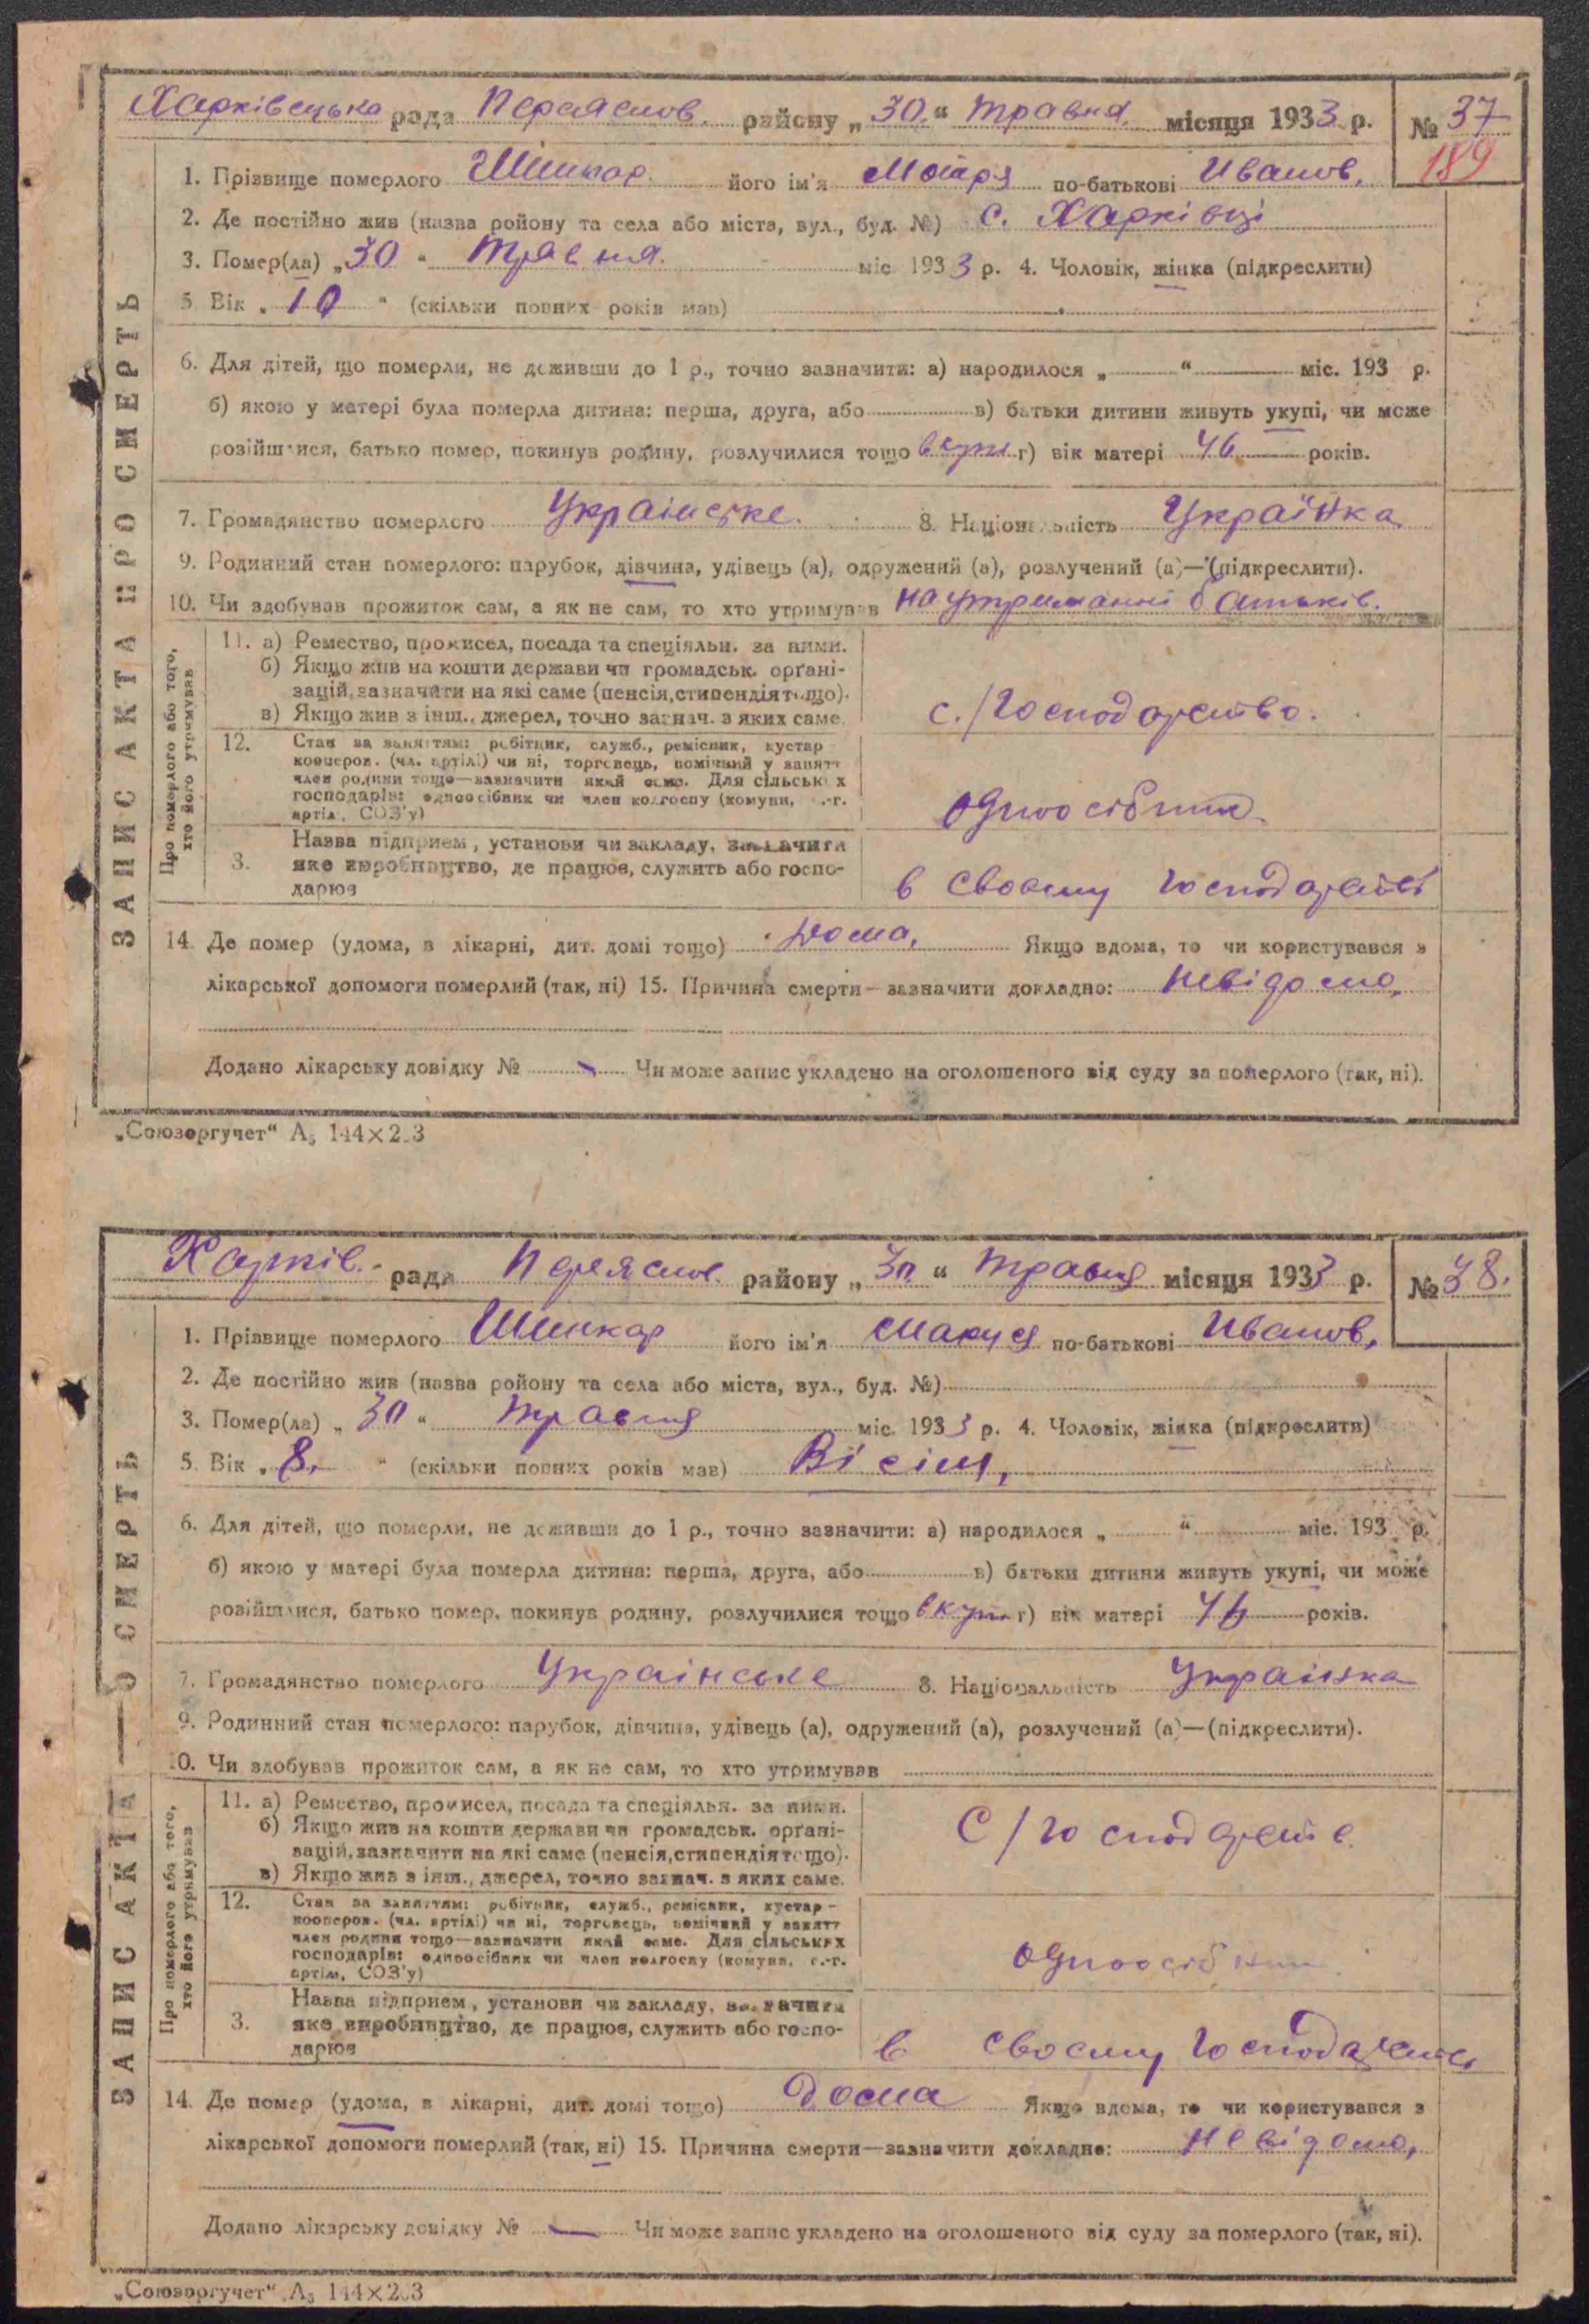 Харківецька рада Переяслов. району „30“ травня місяця 1933 р. № 37
189
1. Прізвище померлого Шинкар його ім'я Мотря по-батькові Иванов.
2. Де постійно жив (назва ройону та села або міста, вул., буд. №) с. Харківці
3. Помер(ла) „30“ травня міс. 1933 р. 4. Чоловік, жінка (підкреслити)
5. Вік „10“ (скільки повних років мав)
6. Для дітей, що померли, не доживши до 1 р., точно зазначити: а) народилося „ “ міс. 193 р.
б) якою у матері була померла дитина: перша, друга, або в) батьки дитини живуть укупі, чи може
розійшлися, батько помер, покинув родину, розлучилися тощо вкупі г) вік матері 46 років.
7. Громадянство померлого Українське. 8. Національність Українка
9. Родинний стан померлого: парубок, дівчина, удівець (а), одружений (а), розлучений (а)—(підкреслити).
10. Чи здобував прожиток сам, а як не сам, то хто утримував на утриманні батьків.
ЗАПИС АКТА ПРО СМЕРТЬ
Про померлого або того, хто його утримував
11. а) Ремество, промисел, посада та спеціяльн. за ними.
б) Якщо жив на кошти держави чи громадськ. орґані-
зацій, зазначити на які саме (пенсія, стипендія тощо).
в) Якщо жив з інш., джерел, точно зазнач. з яких саме.
с./господарство.
12. Стан за заняттям: робітник, служб., ремісник, кустар -
кооперов. (чл. артілі) чи ні, торговець, помічний у занятт
член родини тощо—зазначити який саме. Для сільських
господарів: одноосібник чи член колгоспу (комуни, с.-г.
артіл., СОЗ'у)
одноосібник.
3. Назва підприєм, установи чи закладу, зазначити
яке виробництво, де працює, служить або госпо-
дарює
в своєму господарстві
14. Де помер (удома, в лікарні, дит. домі тощо) дома. Якщо вдома, то чи користувався з
лікарської допомоги померлий (так, ні) 15. Причина смерти—зазначити докладно: невідомо,
Додано лікарську довідку № — Чи може запис укладено на оголошеного від суду за померлого (так, ні).
„Союзоргучет“ А5 144×2.3
Харків. рада Переяслов. району „30“ травня місяця 1933 р. № 38.
1. Прізвище померлого Шинкар його ім'я Маруся по-батькові Иванов,
2. Де постійно жив (назва ройону та села або міста, вул., буд. №)
3. Помер(ла) „30“ травня міс. 1933 р. 4. Чоловік, жінка (підкреслити)
5. Вік „8.“ (скільки повних років мав) Вісім,
6. Для дітей, що померли, не доживши до 1 р., точно зазначити: а) народилося „ “ міс. 193 р.
б) якою у матері була померла дитина: перша, друга, або в) батьки дитини живуть укупі, чи може
розійшлися, батько помер, покинув родину, розлучилися тощо вкупі г) вік матері 46 років.
7. Громадянство померлого Українське 8. Національність Українка
9. Родинний стан померлого: парубок, дівчина, удівець (а), одружений (а), розлучений (а)—(підкреслити).
10. Чи здобував прожиток сам, а як не сам, то хто утримував
ЗАПИС АКТА — О СМЕРТЬ
Про померлого або того, хто його утримував
11. а) Ремество, промисел, посада та спеціяльн. за ними.
б) Якщо жив на кошти держави чи громадськ. орґані-
зацій, зазначити на які саме (пенсія, стипендія тощо).
в) Якщо жив з інш., джерел, точно зазнач. з яких саме.
С/господарств.
12. Стан за заняттям: робітник, служб., ремісник, кустар -
кооперов. (чл. артілі) чи ні, торговець, помічний у занятт
член родини тощо—зазначити який саме. Для сільських
господарів: одноосібник чи член колгоспу (комуни, с.-г.
артіл., СОЗ'у)
одноосібник.
3. Назва підприєм, установи чи закладу, зазначити
яке виробництво, де працює, служить або госпо-
дарює
в своєму господарстві
14. Де помер (удома, в лікарні, дит. домі тощо) Дома Якщо вдома, то чи користувався з
лікарської допомоги померлий (так, ні) 15. Причина смерти—зазначити докладно: Невідомо,
Додано лікарську довідку № — Чи може запис укладено на оголошеного від суду за померлого (так, ні).
„Союзоргучет“ А5 144×2.3